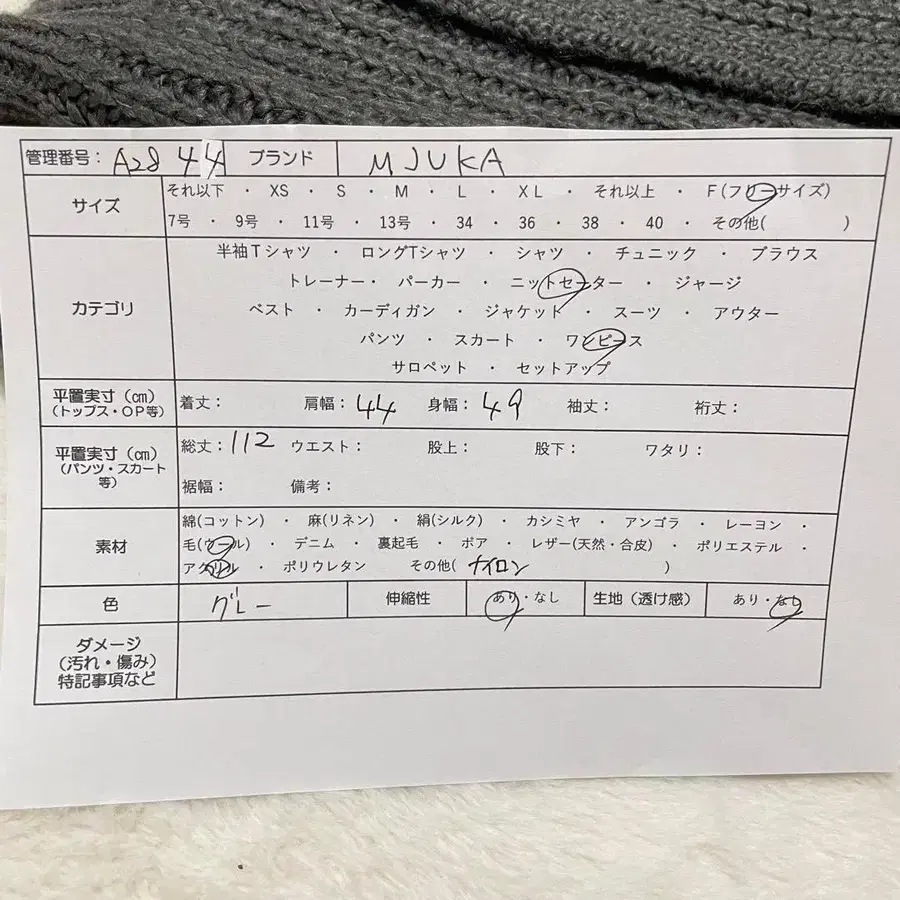 管理番号： A2844 ブランド MJUKA
サイズ
それ以下 ・ XS ・ S ・ M ・ L ・ XL ・ それ以上 ・ F(フリーサイズ)
7号 ・ 9号 ・ 11号 ・ 13号 ・ 34 ・ 36 ・ 38 ・ 40 ・ その他( )
カテゴリ
半袖Tシャツ ・ ロングTシャツ ・ シャツ ・ チュニック ・ ブラウス
トレーナー・ パーカー ・ ニットセーター ・ ジャージ
ベスト ・ カーディガン ・ ジャケット ・ スーツ ・ アウター
パンツ ・ スカート ・ ワンピース
サロペット ・ セットアップ
平置実寸（cm）
(トップス・OP等)
着丈： 肩幅：44 身幅：49 袖丈： 裄丈：
平置実寸（cm）
（パンツ・スカート
等）
総丈：112 ウエスト： 股上： 股下： ワタリ：
裾幅： 備考：
素材
綿(コットン) ・ 麻(リネン) ・ 絹(シルク) ・ カシミヤ ・ アンゴラ ・ レーヨン ・
毛(ウール) ・ デニム ・ 裏起毛 ・ ボア ・ レザー(天然・合皮) ・ ポリエステル ・
アクリル ・ ポリウレタン その他( ナイロン )
色 グレー 伸縮性 あり・なし 生地（透け感） あり・なし
ダメージ
（汚れ・傷み）
特記事項など